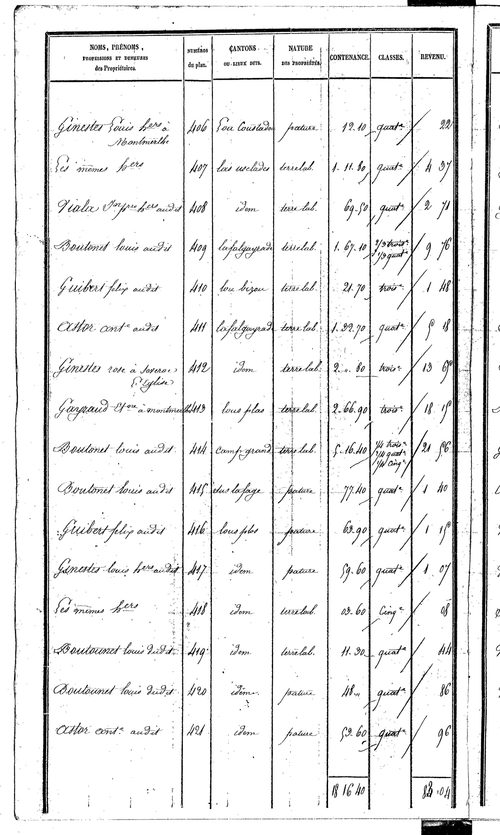 NOMS, PRÉNOMS,
PROFESSIONS ET DEMEURES
des Propriétaires.
NUMÉROS
du plan.
CANTONS
OU LIEUX DITS.
NATURE
DES PROPRIÉTÉS.
CONTENANCE.
CLASSES.
REVENU.
Ginestes Louis hers à
Montmerlhe
406 Lou Coustadou pature 19.10 quate 22
Les mêmes hers 407 las usclades terre lab. 1. 11. 80 quate 4 37
Viala hers audit 408 idem terre lab. 69. 50 quate 2 71
Boutonet louis audit 409 lafalgayrade terre lab. 1. 67. 10 2/3 troise 9 76
1/3 quate
Guibert felix audit 410 lou bezou terre lab. 21. 70 troise 1 48
Astor ante audit 411 lafalgayrade terre lab. 1. 32. 70 quate 5 18
Ginestes rose à Severac 412 idem terre lab. 2. „. 80 troise 13 65
l'Eglise
Gayraud à montmerlhe 413 lous plas terre lab. 2. 66. 90 troise 18 15
Boutonet louis audit 414 camp grand terre lab. 5. 16. 40 1/4 troise 21 56
quate
1/4 cinqe
Boutonet louis audit 415 lafage pature 77. 40 quate 1 40
Guibert felix audit 416 lous plos pature 63. 90 quate 1 15
Ginestes louis hers audit 417 idem pature 59. 60 quate 1 07
Les mêmes hers 418 idem terre lab. 03. 60 Cinqe 08
Boutounet louis dudit 419 idem terre lab. 11. 30 quate 44
Boutounet louis dudit 420 idem pature 48 „ quate 86
Astor ante audit 421 idem pature 53. 60 quate 96
18 16 40